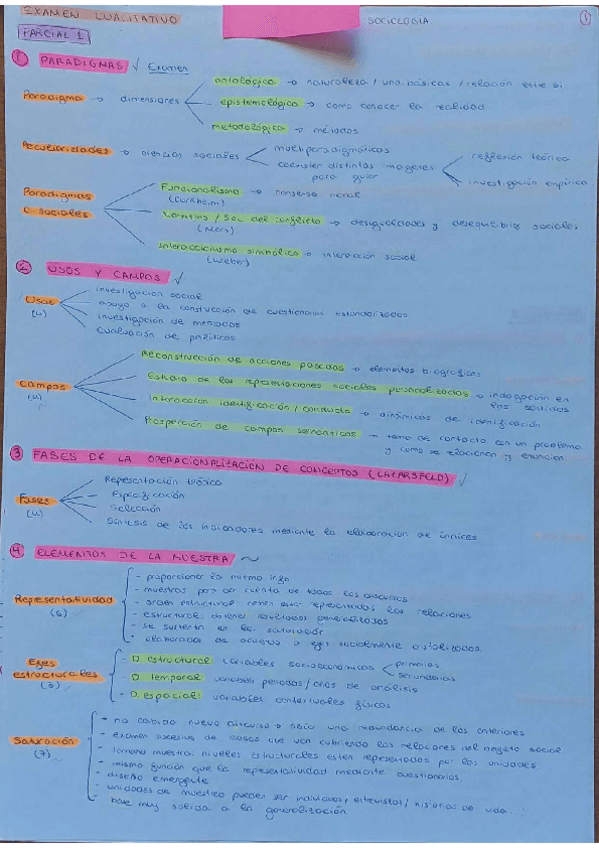 EXAMEN CUALITATIVO SOCIOLOGIA 1
PARCIAL 1
1 PARADIGMAS √ Examen
Paradigma → dimensiones
ontológica → naturaleza / uni. básicas / relación entre si
epistemológica → como conocer la realidad
metodológica → métodos
Peculiaridades → ciencias sociales
multiparadigmáticos
coexisten distintas imagenes para guiar
reflexión teórica
investigación empírica
Paradigmas C. sociales
Funcionalismo → consenso moral
(Durkheim)
Marxismo / Soc. del conflicto → desigualdades y desequilibrios sociales
(Marx)
Interaccionismo simbólico → interacción social
(Weber)
2 USOS Y CAMPOS √
Usos
(4)
investigación social
apoyo a la construcción de cuestionarios estandarizados
investigación de mercados
evaluación de políticas
Campos
(4)
Reconstrucción de acciones pasadas → elementos biográficos
Estudio de las representaciones sociales personalizadas → indagación en
Interacción identificación / conducta → dinámicas de identificación
Prospección de campos semánticos → toma de contacto con un problema
y como se relacionan y
3 FASES DE LA OPERACIONALIZACIÓN DE CONCEPTOS (LAZARSFELD) √
Fases
(4)
Representación teórica
Especificación
Selección
Síntesis de los indicadores mediante la elaboración de índices
4 ELEMENTOS DE LA MUESTRA ~
Representatividad
(6)
- proporcionar la misma
- muestras para dar cuenta de todos los discursos
- orden estructural: tienen estar representados las relaciones
- estructural: obtener resultados generalizados
- se sustenta en la saturación
- elaborados de acuerdo a ejes socialmente establecidos
Ejes estructurales
(3)
- D. estructural: variables socioeconómicas
primarias
secundarias
- D. temporal: variables periodos/años de análisis
- D. espacial: variables contextuales físicos
Saturación
(7)
- no cabida nuevo discurso o sería una redundancia de los anteriores
- examen sucesivo de casos que van cubriendo las relaciones del objeto social
- tamaño muestra: niveles estructurales estén representados por las unidades
- misma función que la representatividad mediante cuestionarios
- diseño emergente
- unidades de muestreo pueden ser individuos, entrevistas / historias de vida...
- base muy sólida a la generalización